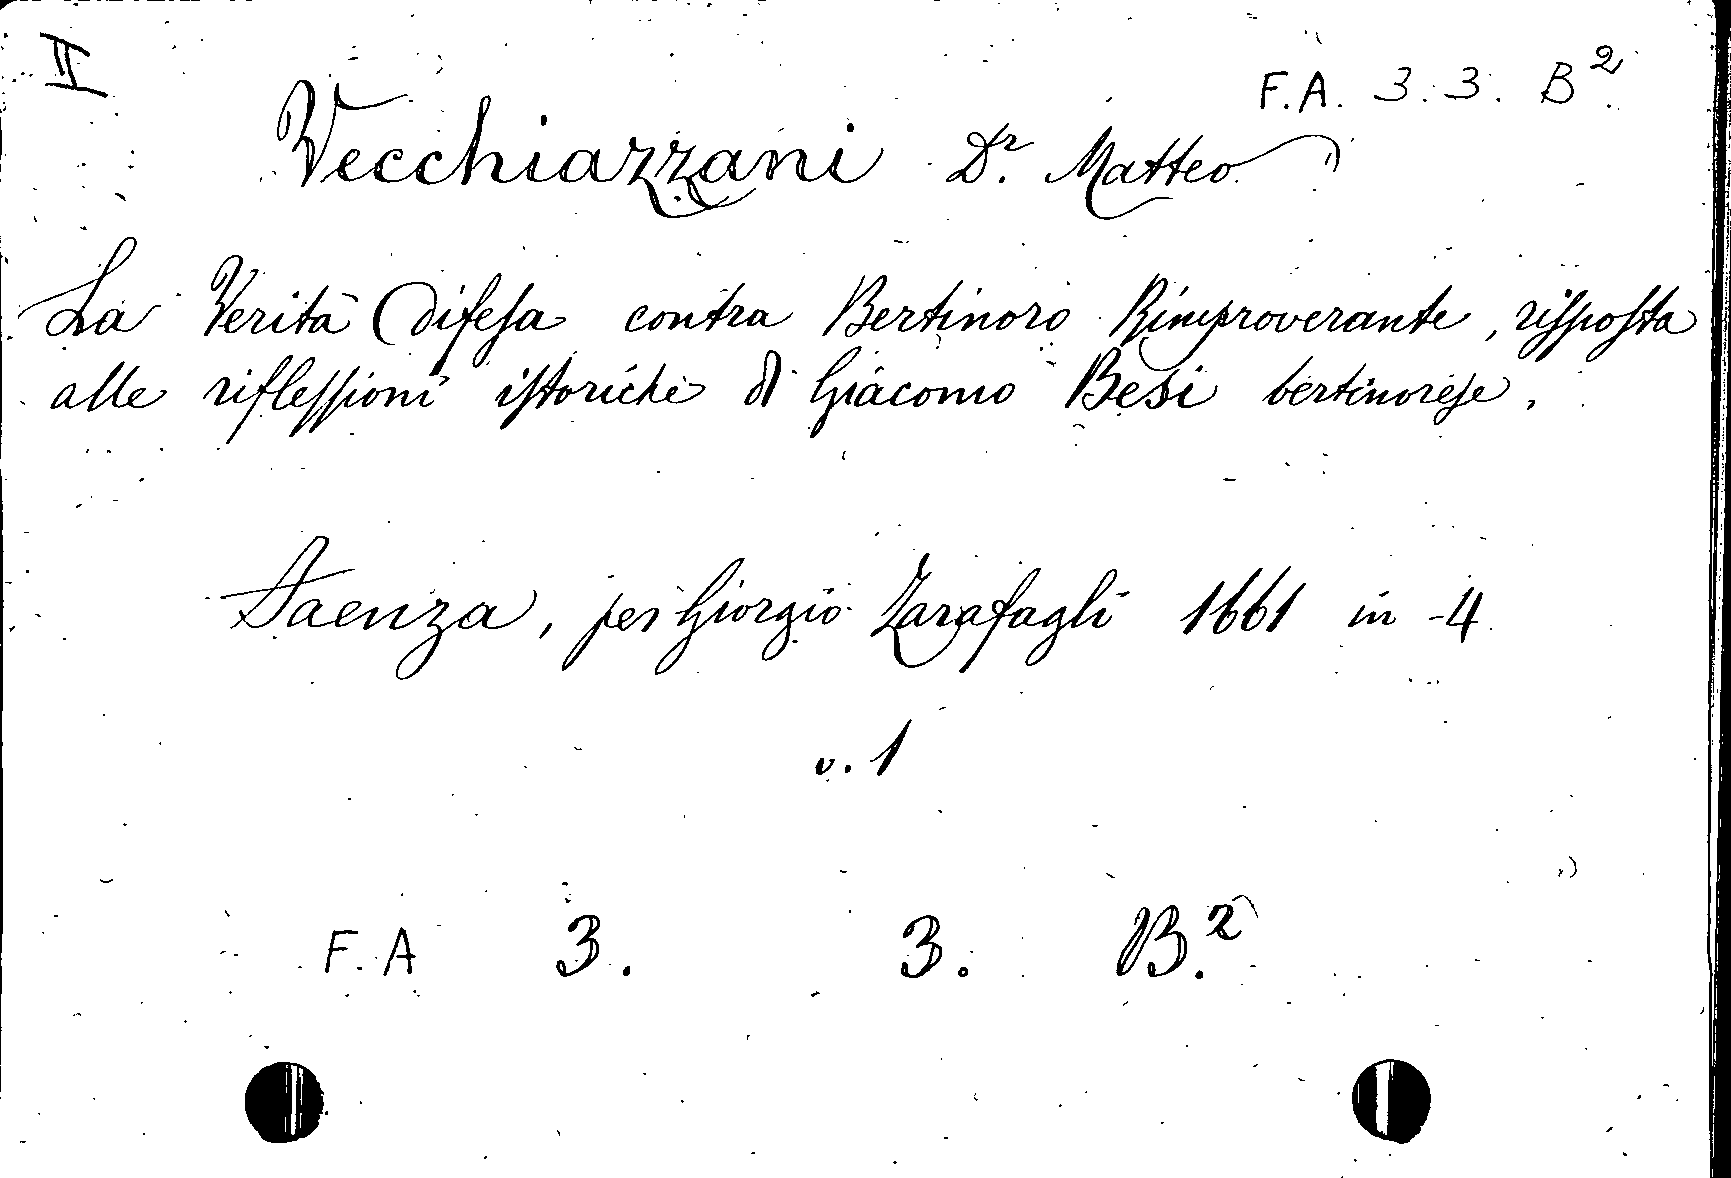 II
F.A. 3.3. B²
Vecchiazzani Dr. Matteo
La Verità Difesa contra Bertinoro Rimproverante, risposta
alle riflessioni istoriche di Giacomo Besi bertinorese.
Faenza, per Giorgio Zarafagli 1661 in-4
v. 1
F.A 3. 3. B.²